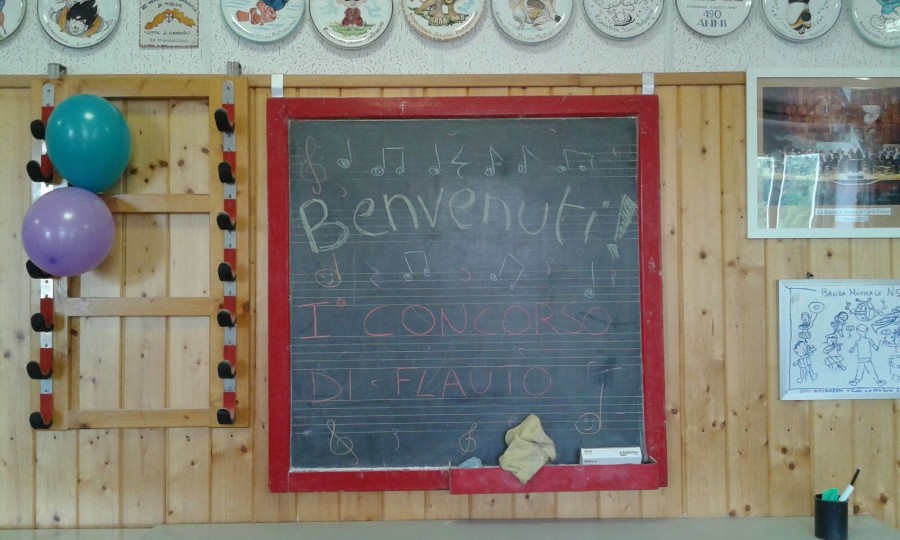 490
ANNI
Benvenuti!
I° CONCORSO
DI FLAUTO
BANDA MUSICALE NS